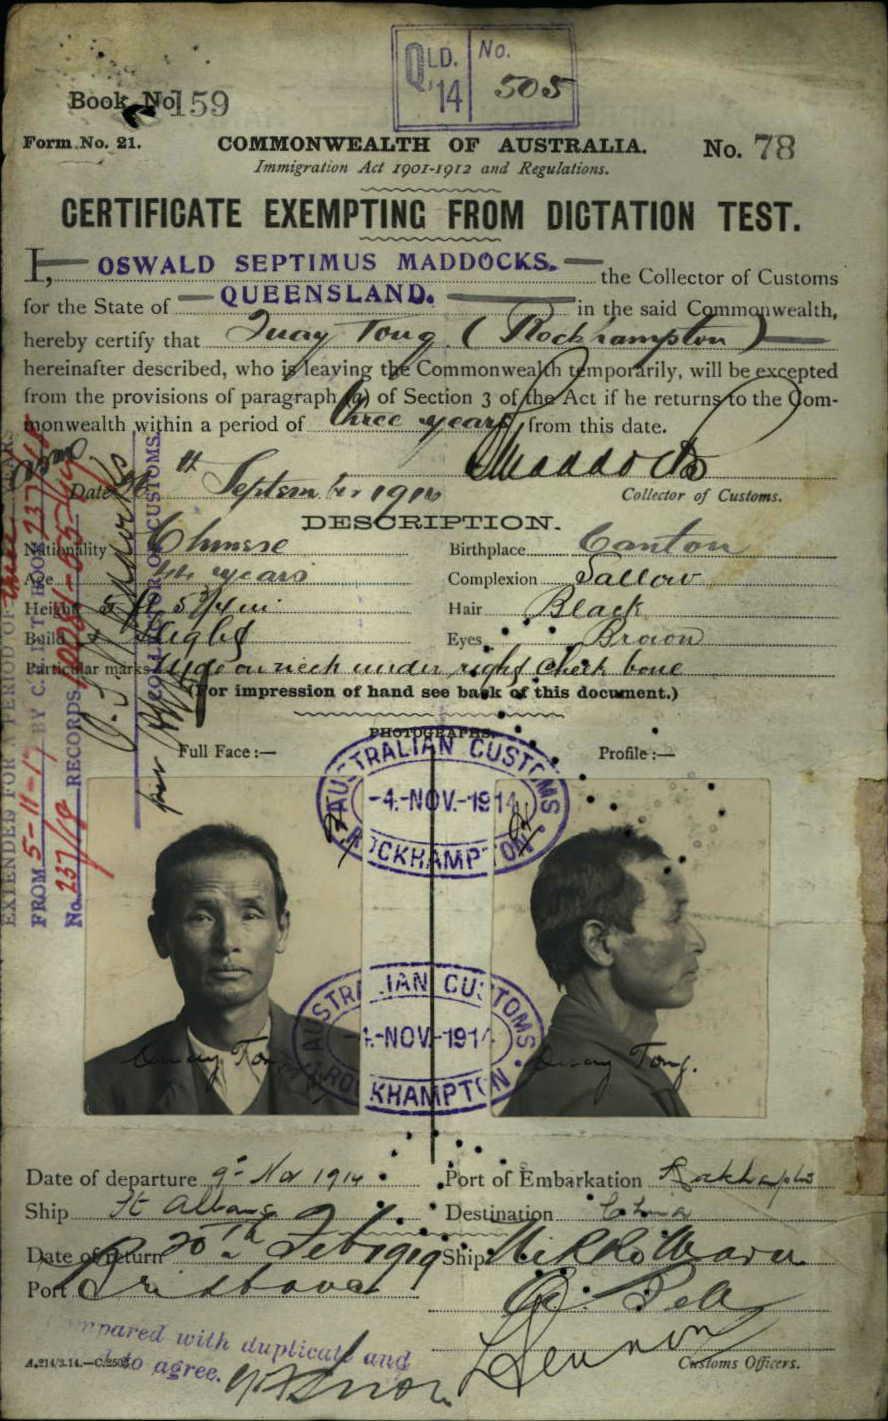 QLD. '14 No. 505
Book No. 159
Form No. 21.
COMMONWEALTH OF AUSTRALIA.
No. 78
Immigration Act 1901-1912 and Regulations.
CERTIFICATE EXEMPTING FROM DICTATION TEST.
I, OSWALD SEPTIMUS MADDOCKS. the Collector of Customs
for the State of QUEENSLAND. in the said Commonwealth,
hereby certify that Quay Tong (Rockhampton)
hereinafter described, who is leaving the Commonwealth temporarily, will be excepted
from the provisions of paragraph (a) of Section 3 of the Act if he returns to the Com-
monwealth within a period of three years from this date.
Date September 1914
Maddocks
Collector of Customs.
DESCRIPTION.
Nationality Chinese
Birthplace Canton
Age 44 years
Complexion Sallow
Height 5 ft 5 3/4 in
Hair Black
Build Slight
Eyes Brown
Particular marks on neck under right cheek bone
(For impression of hand see back of this document.)
PHOTOGRAPHS.
Full Face:—
Profile:—
AUSTRALIAN CUSTOMS
-4.-NOV.-1914
ROCKHAMPTON
AUSTRALIAN CUSTOMS
-4.-NOV.-1914
ROCKHAMPTON
Quay Tong
Quay Tong.
EXTENDED FOR A PERIOD OF YEARS
FROM 5-11-17 BY C. & T. BOOK
No. 237/18 RECORDS
COLLECTOR OF CUSTOMS.
Date of departure 9th Nov 1914
Port of Embarkation Rockhampton
Ship St Albans
Destination China
Date of return 20th Feb 1919
Ship Nikko Maru
Port Brisbane
Customs Officers.
Compared with duplicate and
to agree.
A.214/3.14.—C.2508